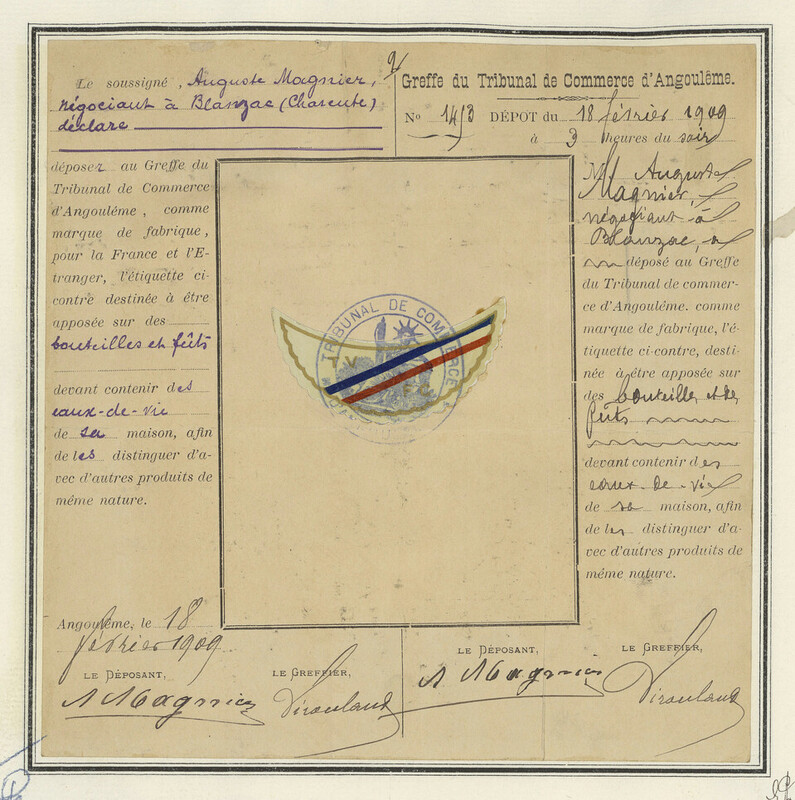 Le soussigné, Auguste Magnier,
négociant à Blanzac (Charente)
déclare
déposer au Greffe du
Tribunal de Commerce
d'Angoulême, comme
marque de fabrique,
pour la France et l'E-
tranger, l'étiquette ci-
contre destinée à être
apposée sur des
bouteilles et fûts
devant contenir des
eaux-de-vie
de sa maison, afin
de les distinguer d'a-
vec d'autres produits de
même nature.
Angoulême, le 18
février 1909
LE DÉPOSANT,
A Magnier
LE GREFFIER,
Greffe du Tribunal de Commerce d'Angoulême.
No 1413 DÉPOT du 18 février 1909
à 3 heures du soir
M. Auguste
Magnier,
négociant à
Blanzac, a
déposé au Greffe
du Tribunal de commer-
ce d'Angoulême. comme
marque de fabrique, l'é-
tiquette ci-contre, desti-
née à être apposée sur
des bouteilles et des
fûts
devant contenir des
eaux-de-vie
de sa maison, afin
de les distinguer d'a-
vec d'autres produits de
même nature.
LE DÉPOSANT,
A Magnier
LE GREFFIER,
TRIBUNAL DE COMMERCE